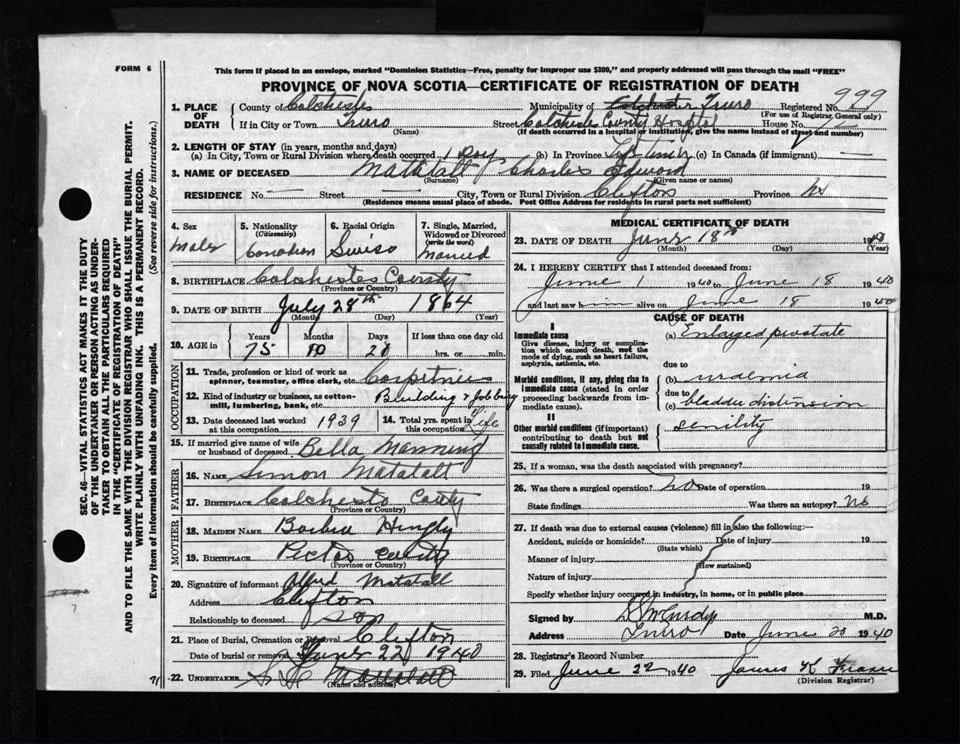 FORM 6
This form if placed in an envelope, marked "Dominion Statistics—Free, penalty for improper use $300," and properly addressed will pass through the mail "FREE"
PROVINCE OF NOVA SCOTIA—CERTIFICATE OF REGISTRATION OF DEATH
999
1. PLACE OF DEATH County of Colchester Municipality of Colchester Truro Registered No.
(For use of Registrar, General only)
If in City or Town Truro Street Colchester County Hospital House No.
(Name) (If death occurred in a hospital or institution, give the name instead of street and number)
2. LENGTH OF STAY (in years, months and days)
(a) In City, Town or Rural Division where death occurred 1 Day (b) In Province Life time (c) In Canada (if immigrant)
3. NAME OF DECEASED Matatall Charles Edward
(Surname) (Given name or names)
RESIDENCE No. Street City, Town or Rural Division Clifton Province NS
(Residence means usual place of abode. Post Office Address for residents in rural parts not sufficient)
4. Sex 5. Nationality 6. Racial Origin 7. Single, Married,
(Citizenship) Widowed or Divorced
(write the word)
Male Canadian Swiss Married
8. BIRTHPLACE Colchester County
(Province or Country)
9. DATE OF BIRTH July 28th 1864
(Month) (Day) (Year)
10. AGE in Years Months Days If less than one day old
75 10 20 hrs. or min.
OCCUPATION
11. Trade, profession or kind of work as
spinner, teamster, office clerk, etc. Carpenter
12. Kind of industry or business, as cotton-
mill, lumbering, bank, etc. Building & jobbing
13. Date deceased last worked 14. Total yrs. spent in
at this occupation 1939 this occupation Life
15. If married give name of wife
or husband of deceased Bella Manning
FATHER
16. NAME Simon Matatall
17. BIRTHPLACE Colchester County
(Province or Country)
MOTHER
18. MAIDEN NAME
19. BIRTHPLACE Pictou County
(Province or Country)
20. Signature of informant Alfred Matatall
Address Clifton
Relationship to deceased Son
21. Place of Burial, Cremation or Removal Clifton
Date of burial or removal June 22 1940
22. UNDERTAKER Mattatall
(Name and address)
MEDICAL CERTIFICATE OF DEATH
23. DATE OF DEATH June 18th 1940
(Month) (Day)
24. I HEREBY CERTIFY that I attended deceased from:
June 1 1940 to June 18 1940
and last saw him alive on June 18 1940
CAUSE OF DEATH
I
Immediate cause (a) Enlarged prostate
Give disease, injury or complica-
tion which caused death, not the
mode of dying, such as heart failure,
asphyxia, asthenia, etc. due to
Morbid conditions, if any, giving rise to (b) uraemia
immediate cause (stated in order
proceeding backwards from im-
mediate cause). due to
(c) bladder distension
II
Other morbid conditions (if important)
contributing to death but not
causally related to immediate cause. senility
25. If a woman, was the death associated with pregnancy?
26. Was there a surgical operation? no Date of operation 19
State findings Was there an autopsy? No
27. If death was due to external causes (violence) fill in also the following:—
Accident, suicide or homicide? Date of injury 19
(State which)
Manner of injury
(How sustained)
Nature of injury
Specify whether injury occurred in industry, in home, or in public place
Signed by M.D.
Address Truro Date June 20 1940
28. Registrar's Record Number
29. Filed June 22 1940 James K Fraser
(Division Registrar)
SEC. 46—VITAL STATISTICS ACT MAKES IT THE DUTY
OF THE UNDERTAKER OR PERSON ACTING AS UNDER-
TAKER TO OBTAIN ALL THE PARTICULARS REQUIRED
IN THE "CERTIFICATE OF REGISTRATION OF DEATH"
AND TO FILE THE SAME WITH THE DIVISION REGISTRAR WHO SHALL ISSUE THE BURIAL PERMIT.
WRITE PLAINLY WITH UNFADING INK. THIS IS A PERMANENT RECORD.
Every item of Information should be carefully supplied. (See reverse side for instructions.)